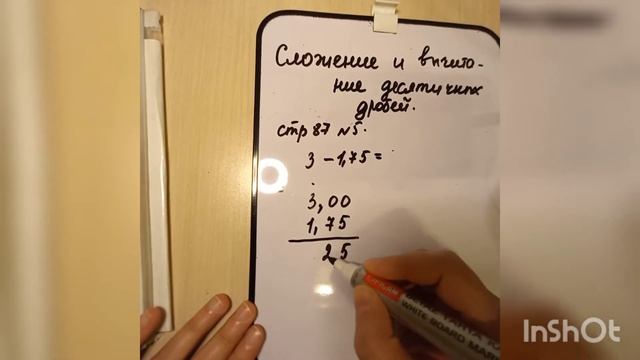 Сложение и вычита-
ние десятичных
дробей.
стр 87 №5.
3 - 1,75 =
3,00
1,75
25
WHITE BOARD MA
InShOt